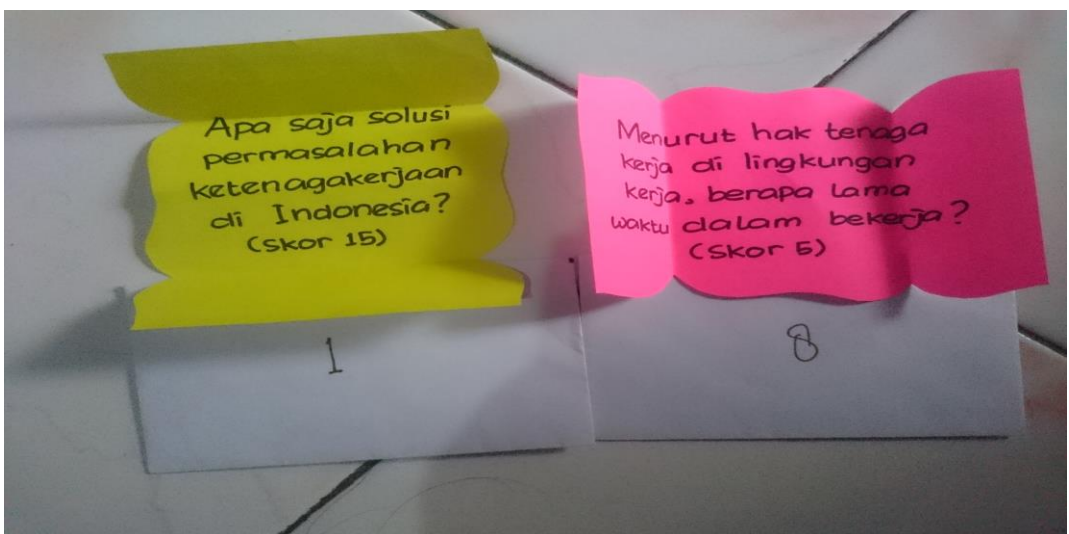 Apa saja solusi
permasalahan
ketenagakerjaan
di Indonesia?
(Skor 15)
1
Menurut hak tenaga
kerja di lingkungan
kerja, berapa lama
waktu dalam bekerja?
(Skor 5)
8